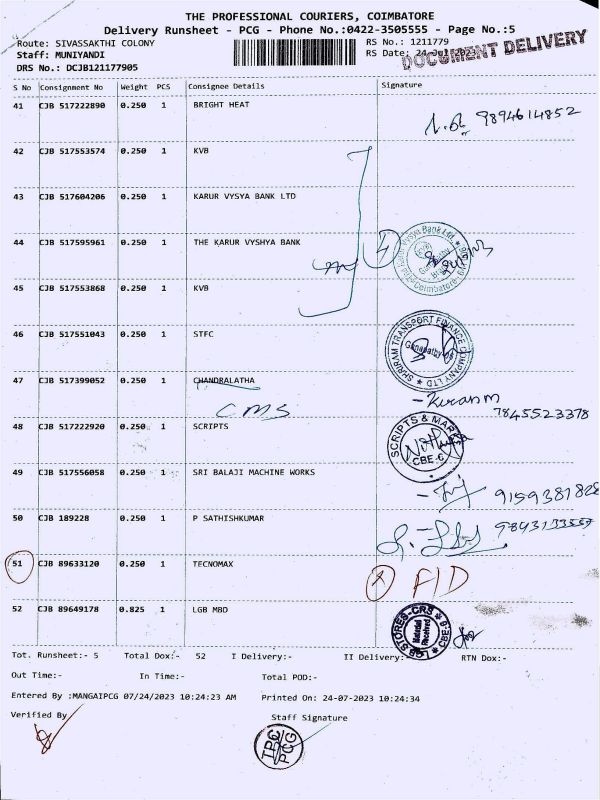 THE PROFESSIONAL COURIERS, COIMBATORE
Delivery Runsheet - PCG - Phone No.:0422-3505555 - Page No.:5
Route: SIVASSAKTHI COLONY RS No.: 1211779
Staff: MUNIYANDI RS Date: 24-Jul-2023 DOCUMENT DELIVERY
DRS No.: DCJB121177905
S No Consignment No Weight PCS Consignee Details Signature
41 CJB 517222890 0.250 1 BRIGHT HEAT
9894614852
42 CJB 517553574 0.250 1 KVB
43 CJB 517604206 0.250 1 KARUR VYSYA BANK LTD
44 CJB 517595961 0.250 1 THE KARUR VYSHYA BANK 4
45 CJB 517553868 0.250 1 KVB
46 CJB 517551043 0.250 1 STFC SHRIRAM TRANSPORT FINANCE COMPANY LTD
47 CJB 517399052 0.250 1 CHANDRALATHA
CMS
- Kiran M
7845523378
48 CJB 517222920 0.250 1 SCRIPTS SCRIPTS & MARK CBE-6
49 CJB 517556058 0.250 1 SRI BALAJI MACHINE WORKS
9159381828
50 CJB 189228 0.250 1 P SATHISHKUMAR
51 CJB 89633120 0.250 1 TECNOMAX
FID
52 CJB 89649178 0.825 1 LGB MBD LGB STORES-CRS Material Received CBE-6
Tot. Runsheet:- 5 Total Dox:- 52 I Delivery:- II Delivery:- RTN Dox:-
Out Time:- In Time:- Total POD:-
Entered By :MANGAIPCG 07/24/2023 10:24:23 AM Printed On: 24-07-2023 10:24:34
Verified By Staff Signature
TPC
PCG